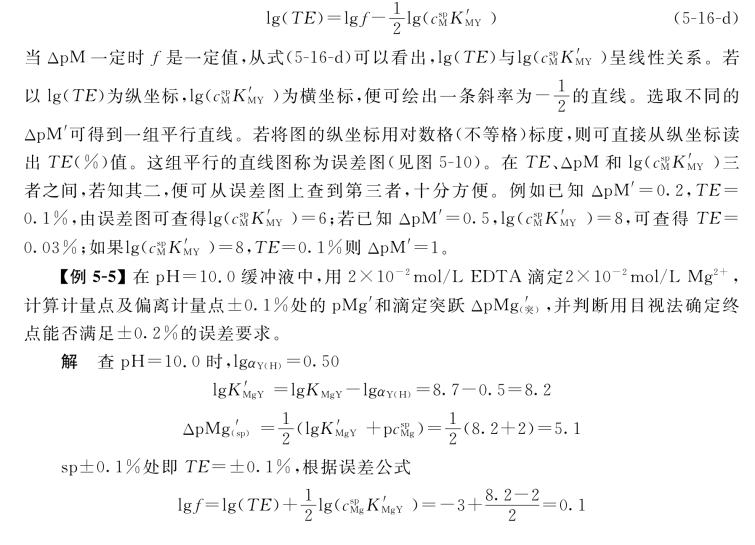 lg(TE)=lgf−1/2lg(c_M^sp K′_MY) (5-16-d)
当 ΔpM 一定时 f 是一定值,从式(5-16-d)可以看出,lg(TE)与lg(c_M^sp K′_MY)呈线性关系。若
以 lg(TE)为纵坐标,lg(c_M^sp K′_MY)为横坐标,便可绘出一条斜率为−1/2的直线。选取不同的
ΔpM′可得到一组平行直线。若将图的纵坐标用对数格(不等格)标度,则可直接从纵坐标读
出 TE(%)值。这组平行的直线图称为误差图(见图 5-10)。在 TE、ΔpM 和 lg(c_M^sp K′_MY)三
者之间,若知其二,便可从误差图上查到第三者,十分方便。例如已知 ΔpM′=0.2,TE=
0.1%,由误差图可查得lg(c_M^sp K′_MY)=6;若已知 ΔpM′=0.5,lg(c_M^sp K′_MY)=8,可查得 TE=
0.03%;如果lg(c_M^sp K′_MY)=8,TE=0.1%则 ΔpM′=1。
【例 5-5】在 pH=10.0 缓冲液中,用 2×10⁻²mol/L EDTA 滴定2×10⁻²mol/L Mg²⁺,
计算计量点及偏离计量点±0.1%处的 pMg′和滴定突跃 ΔpMg′(突),并判断用目视法确定终
点能否满足±0.2%的误差要求。
解 查 pH=10.0 时,lgα_Y(H)=0.50
lgK′_MgY=lgK_MgY−lgα_Y(H)=8.7−0.5=8.2
ΔpMg′(sp)=1/2(lgK′_MgY+pc_Mg^sp)=1/2(8.2+2)=5.1
sp±0.1%处即 TE=±0.1%,根据误差公式
lgf=lg(TE)+1/2lg(c_Mg^sp K′_MgY)=−3+(8.2−2)/2=0.1